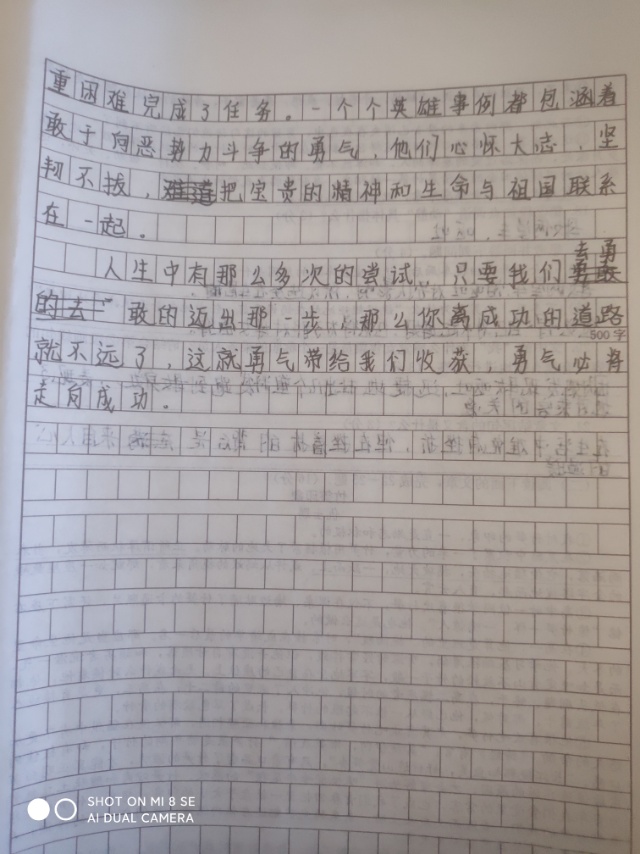 重困难完成了任务。一个个英雄事例都包涵着
敢于向恶势力斗争的勇气，他们心怀大志，坚
韧不拔，把宝贵的精神和生命与祖国联系
在一起。
去勇
人生中有那么多次的尝试，只要我们
敢的迈出那一步，那么你离成功的道路
500字
就不远了，这就勇气带给我们收获，勇气必将
走向成功。
SHOT ON MI 8 SE
AI DUAL CAMERA